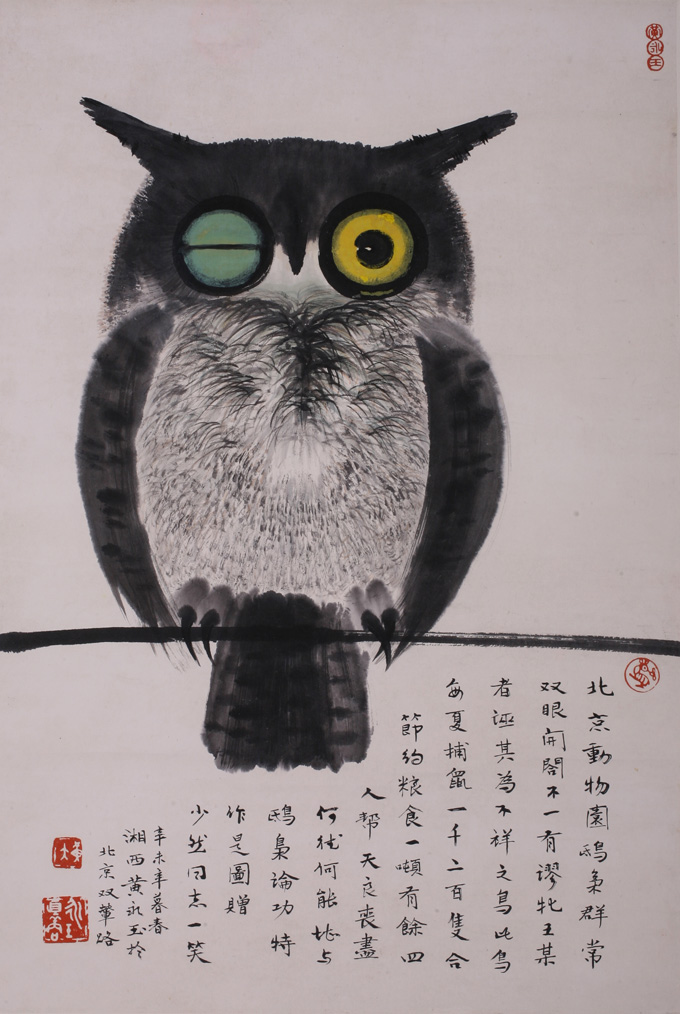 黃永玉
北京動物園鴟梟群常
双眼開閤不一有謬牝王某
者誣其為不祥之鳥此鳥
每夏捕鼠一千二百隻合
節約粮食一噸有餘四
人幫天良喪盡
何德何能与
鴟梟論功特
作是圖贈
少然同志一笑
辛未年暮春
湘西黄永玉於
北京双輦路